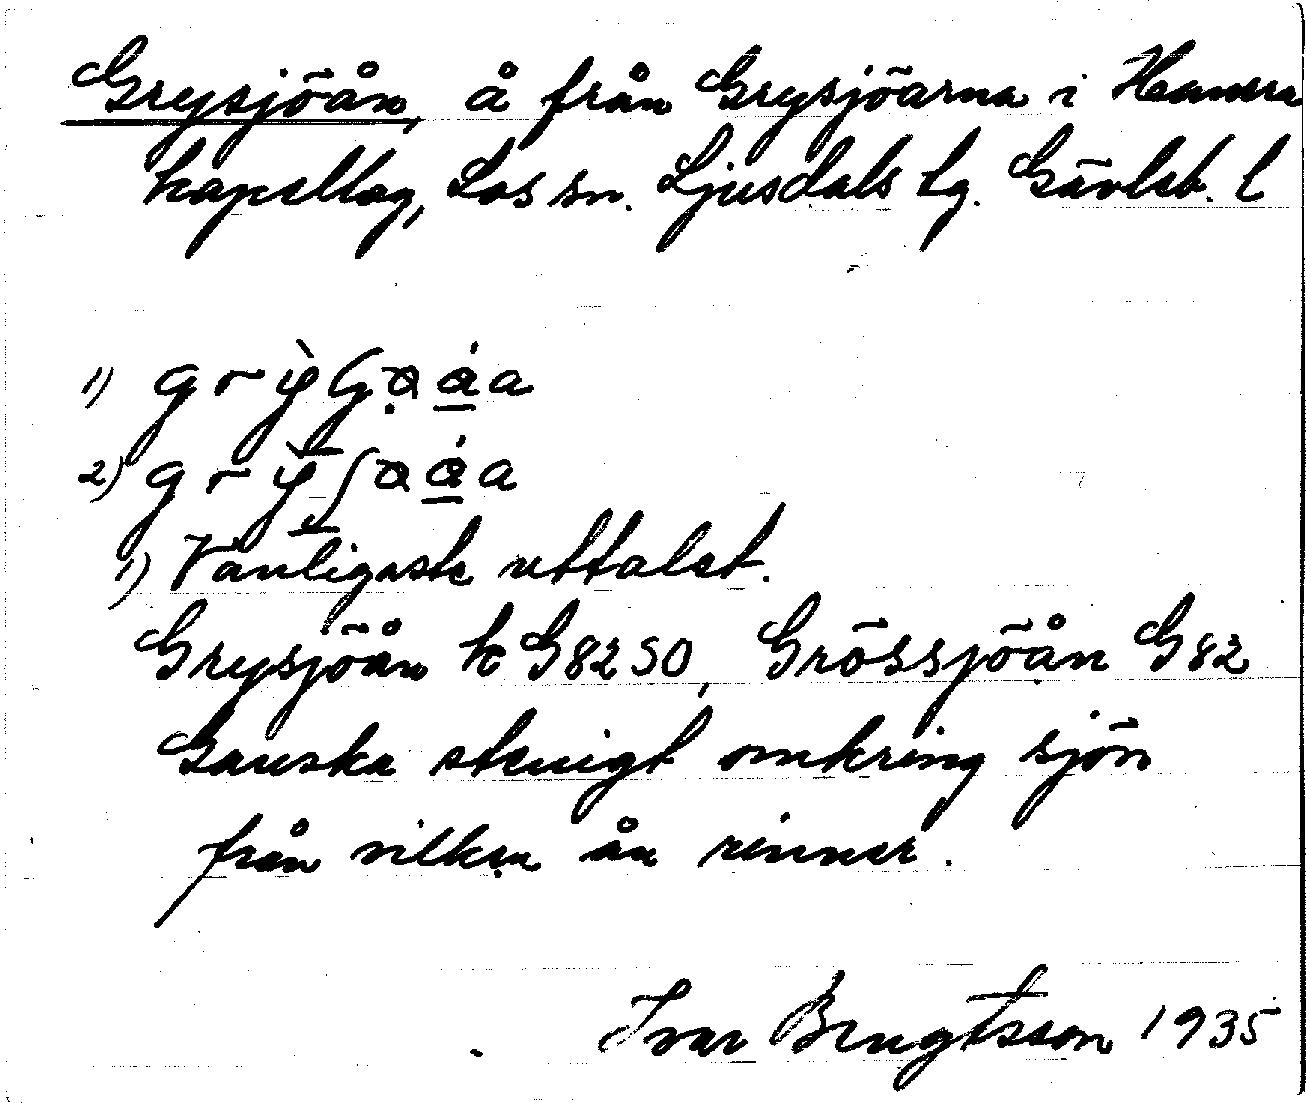 Grysjöån, å från Grysjöarna i Hamra
kapellag, Los sn. Ljusdals tg. Gävleb. l
1)
2)
1) Vanligaste uttalet.
Grysjöån k G82SO, Grössjöån G82
Ganska stenigt omkring sjön
från vilken ån rinner.
Ivar Bengtsson 1935